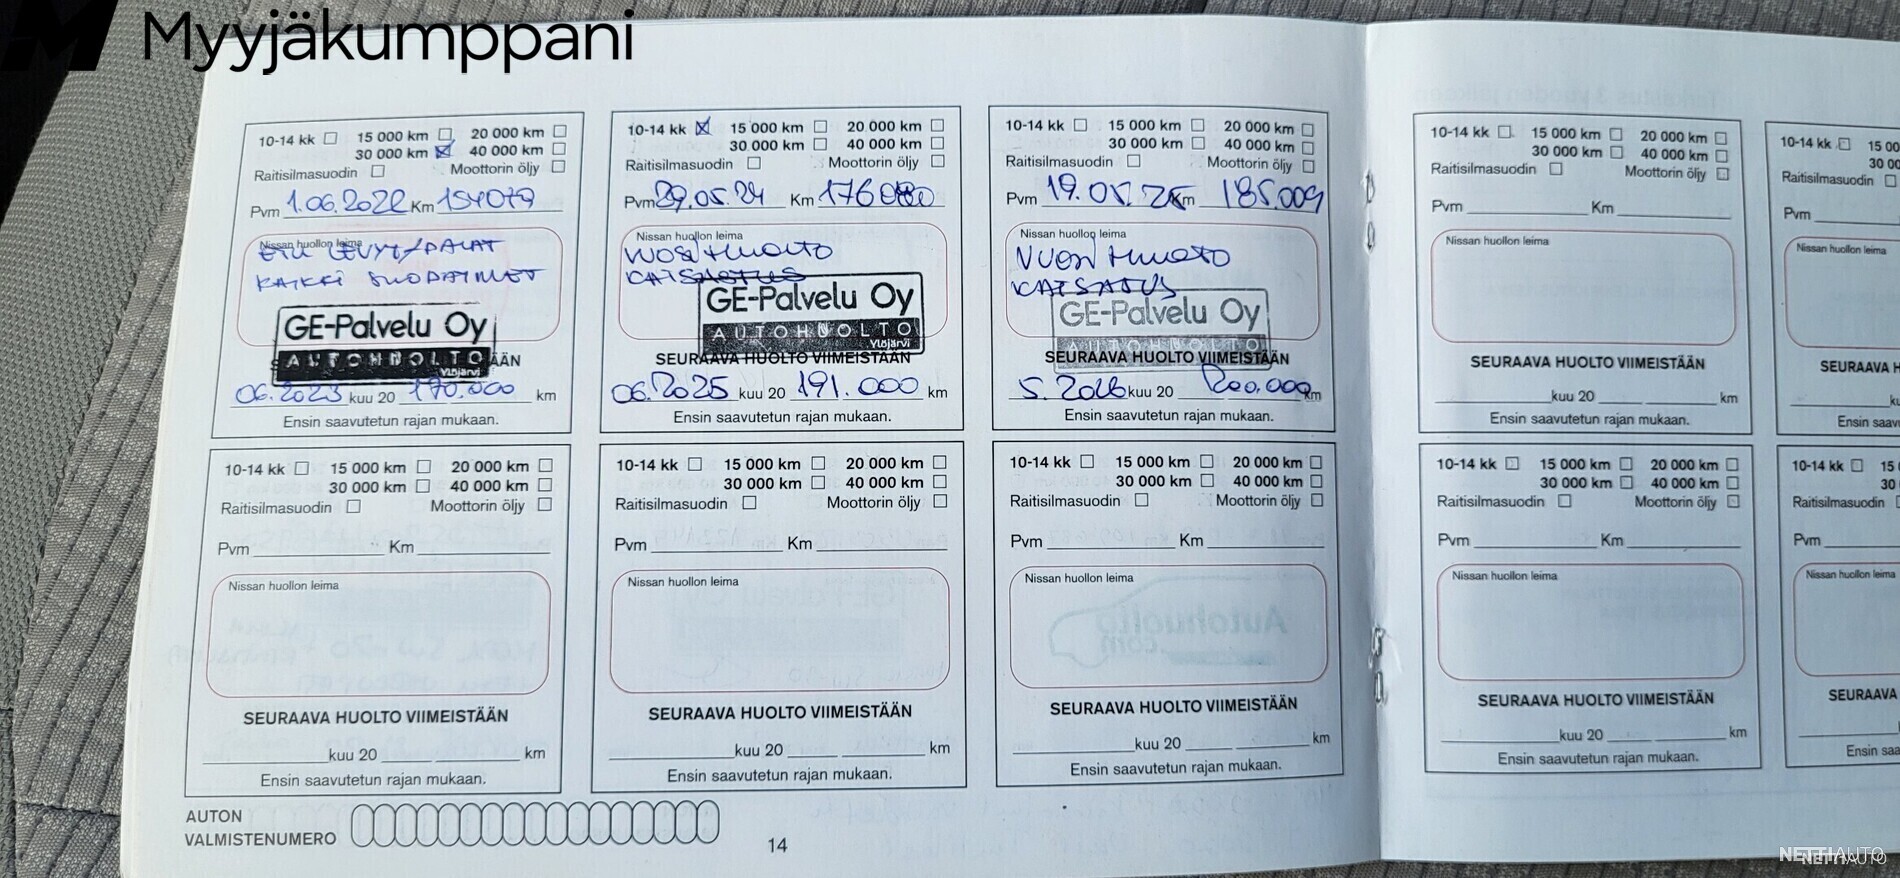 Myyjäkumppani
10-14 kk 15 000 km 20 000 km
30 000 km 40 000 km
Raitisilmasuodin Moottorin öljy
Pvm 1.06.2022 Km 154079
Nissan huollon leima
ETU LEVYT/PALAT
KAIKKI SUODATIMET
GE-Palvelu Oy
AUTOHUOLTO
Ylöjärvi
ÄÄN
06.2023 kuu 20 170.000 km
Ensin saavutetun rajan mukaan.
10-14 kk 15 000 km 20 000 km
30 000 km 40 000 km
Raitisilmasuodin Moottorin öljy
Pvm 29.05.24 Km
Nissan huollon leima
VUOSIHUOLTO
GE-Palvelu Oy
AUTOHUOLTO
Ylöjärvi
SEURAAVA HUOLTO VIIMEISTÄÄN
06.2025 kuu 20 191.000 km
Ensin saavutetun rajan mukaan.
10-14 kk 15 000 km 20 000 km
30 000 km 40 000 km
Raitisilmasuodin Moottorin öljy
Pvm 19.05.25 Km 185.009
Nissan huollon leima
VUOSIHUOLTO
KATSATUS
GE-Palvelu Oy
AUTOHUOLTO
SEURAAVA HUOLTO VIIMEISTÄÄN
5.2026 kuu 20 200.000 km
Ensin saavutetun rajan mukaan.
10-14 kk 15 000 km 20 000 km
30 000 km 40 000 km
Raitisilmasuodin Moottorin öljy
Pvm Km
Nissan huollon leima
SEURAAVA HUOLTO VIIMEISTÄÄN
kuu 20 km
Ensin saavutetun rajan mukaan.
10-14 kk 15 000 km 20 000 km
30 000 km 40 000 km
Raitisilmasuodin Moottorin öljy
Pvm Km
Nissan huollon leima
SEURAAVA HUOLTO VIIMEISTÄÄN
kuu 20 km
Ensin saavutetun rajan mukaan.
10-14 kk 15 000 km 20 000 km
30 000 km 40 000 km
Raitisilmasuodin Moottorin öljy
Pvm Km
Nissan huollon leima
SEURAAVA HUOLTO VIIMEISTÄÄN
kuu 20 km
Ensin saavutetun rajan mukaan.
AUTON
VALMISTENUMERO
14
10-14 kk 15 000 km 20 000 km
30 000 km 40 000 km
Raitisilmasuodin Moottorin öljy
Pvm Km
Nissan huollon leima
SEURAAVA HUOLTO VIIMEISTÄÄN
kuu 20 km
Ensin saavutetun rajan mukaan.
10-14 kk 15 00
30 00
Raitisilmasuodin
Pvm
Nissan huollon leima
SEURAAVA H
Ensin saav
10-14 kk 15 000 km 20 000 km
30 000 km 40 000 km
Raitisilmasuodin Moottorin öljy
Pvm Km
Nissan huollon leima
SEURAAVA HUOLTO VIIMEISTÄÄN
kuu 20 km
Ensin saavutetun rajan mukaan.
10-14 kk 15
30
Raitisilmasuodin
Pvm
Nissan huollon leima
SEURAAVA
Ensin saa
NETTIAUTO